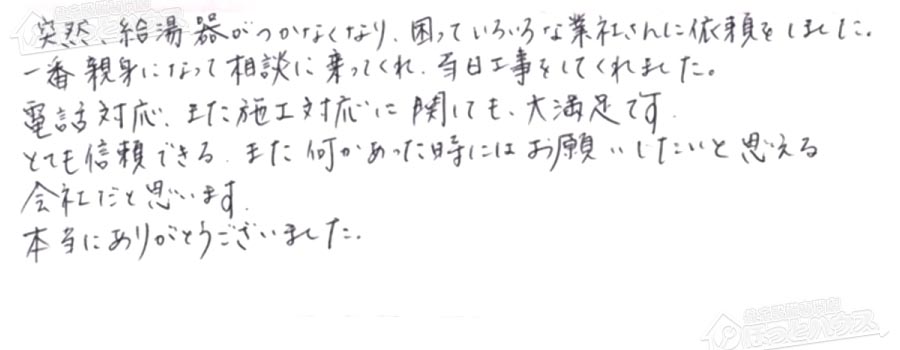 突然、給湯器がつかなくなり、困っていろいろな業社さんに依頼をしました。
一番親身になって相談に乗ってくれ、当日工事をしてくれました。
電話対応、また施工対応に関しても、大満足です。
とても信頼できる、また何かあった時にはお願いしたいと思える
会社だと思います。
本当にありがとうございました。
ほっとハウス